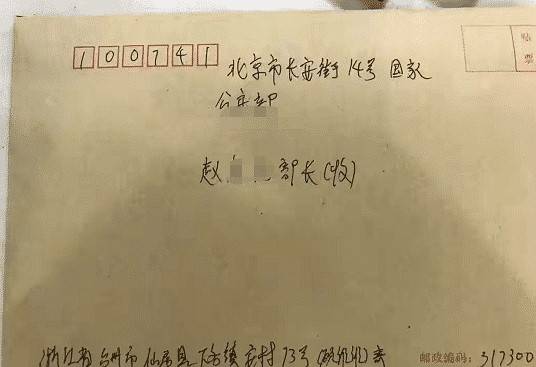 100741
北京市长安街14号 国家
公安部
赵 部长(收)
贴票
浙江省台州市仙居县下各镇 村13号
邮政编码: 317300